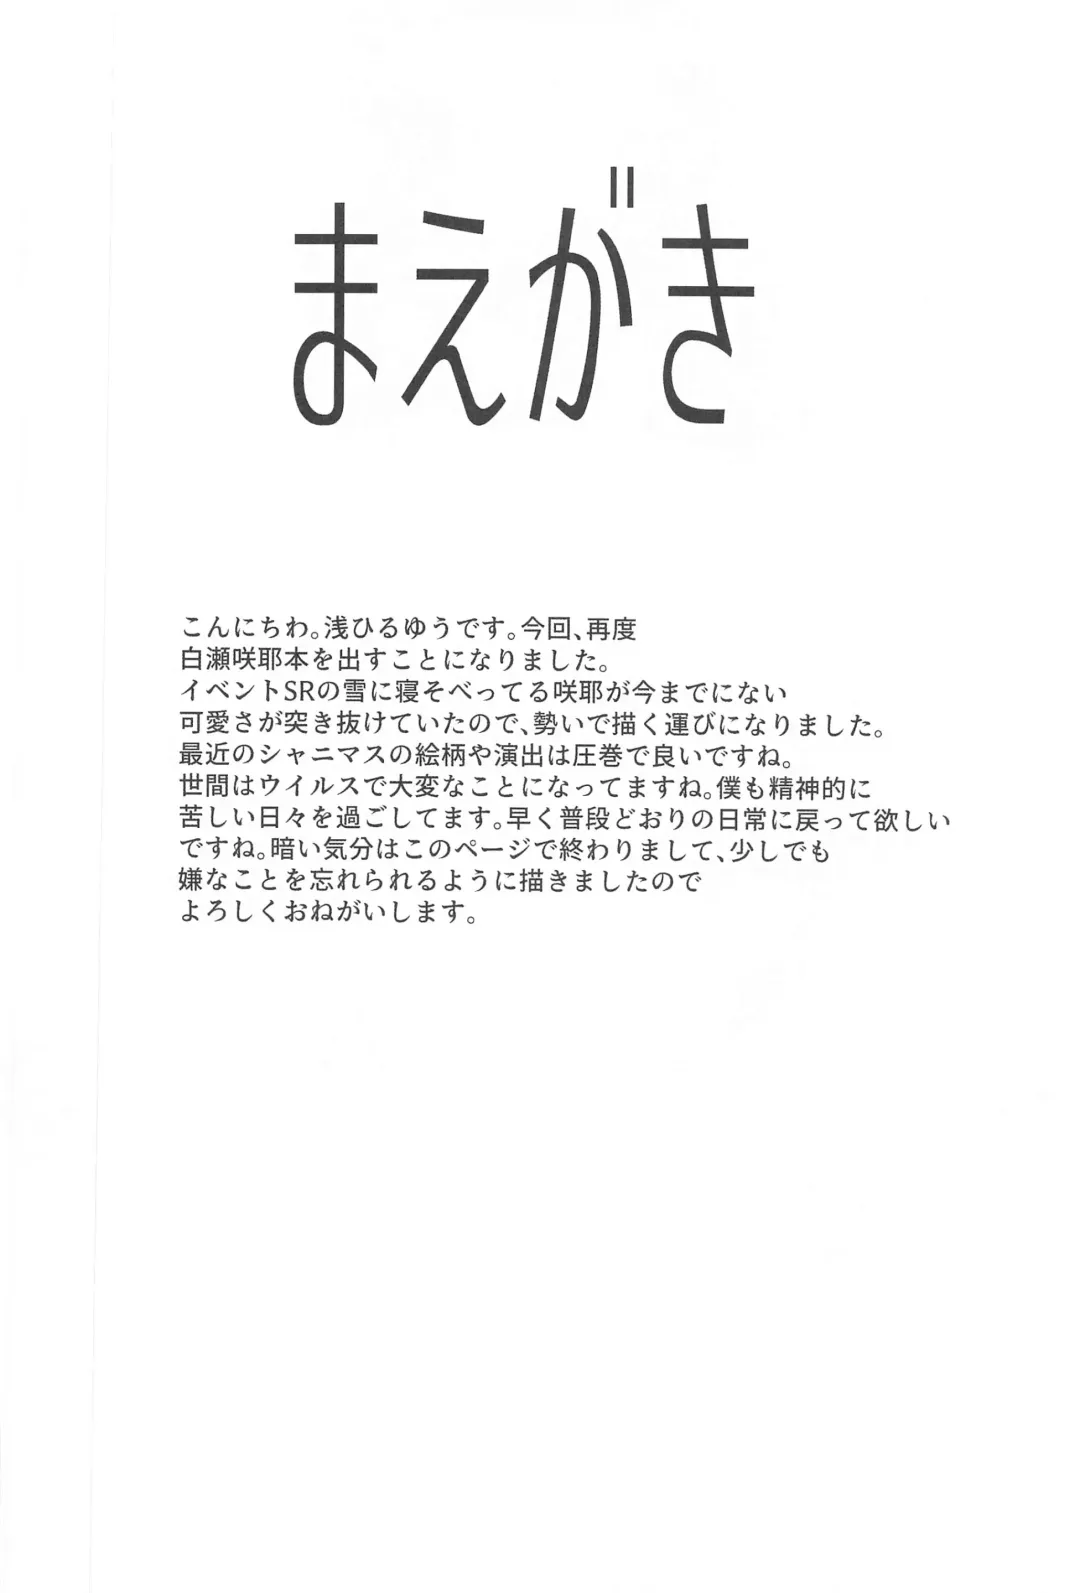 まえがき
こんにちわ。浅ひるゆうです。今回、再度
白瀬咲耶本を出すことになりました。
イベントSRの雪に寝そべってる咲耶が今までにない
可愛さが突き抜けていたので、勢いで描く運びになりました。
最近のシャニマスの絵柄や演出は圧巻で良いですね。
世間はウイルスで大変なことになってますね。僕も精神的に
苦しい日々を過ごしてます。早く普段どおりの日常に戻って欲しい
ですね。暗い気分はこのページで終わりまして、少しでも
嫌なことを忘れられるように描きましたので
よろしくおねがいします。